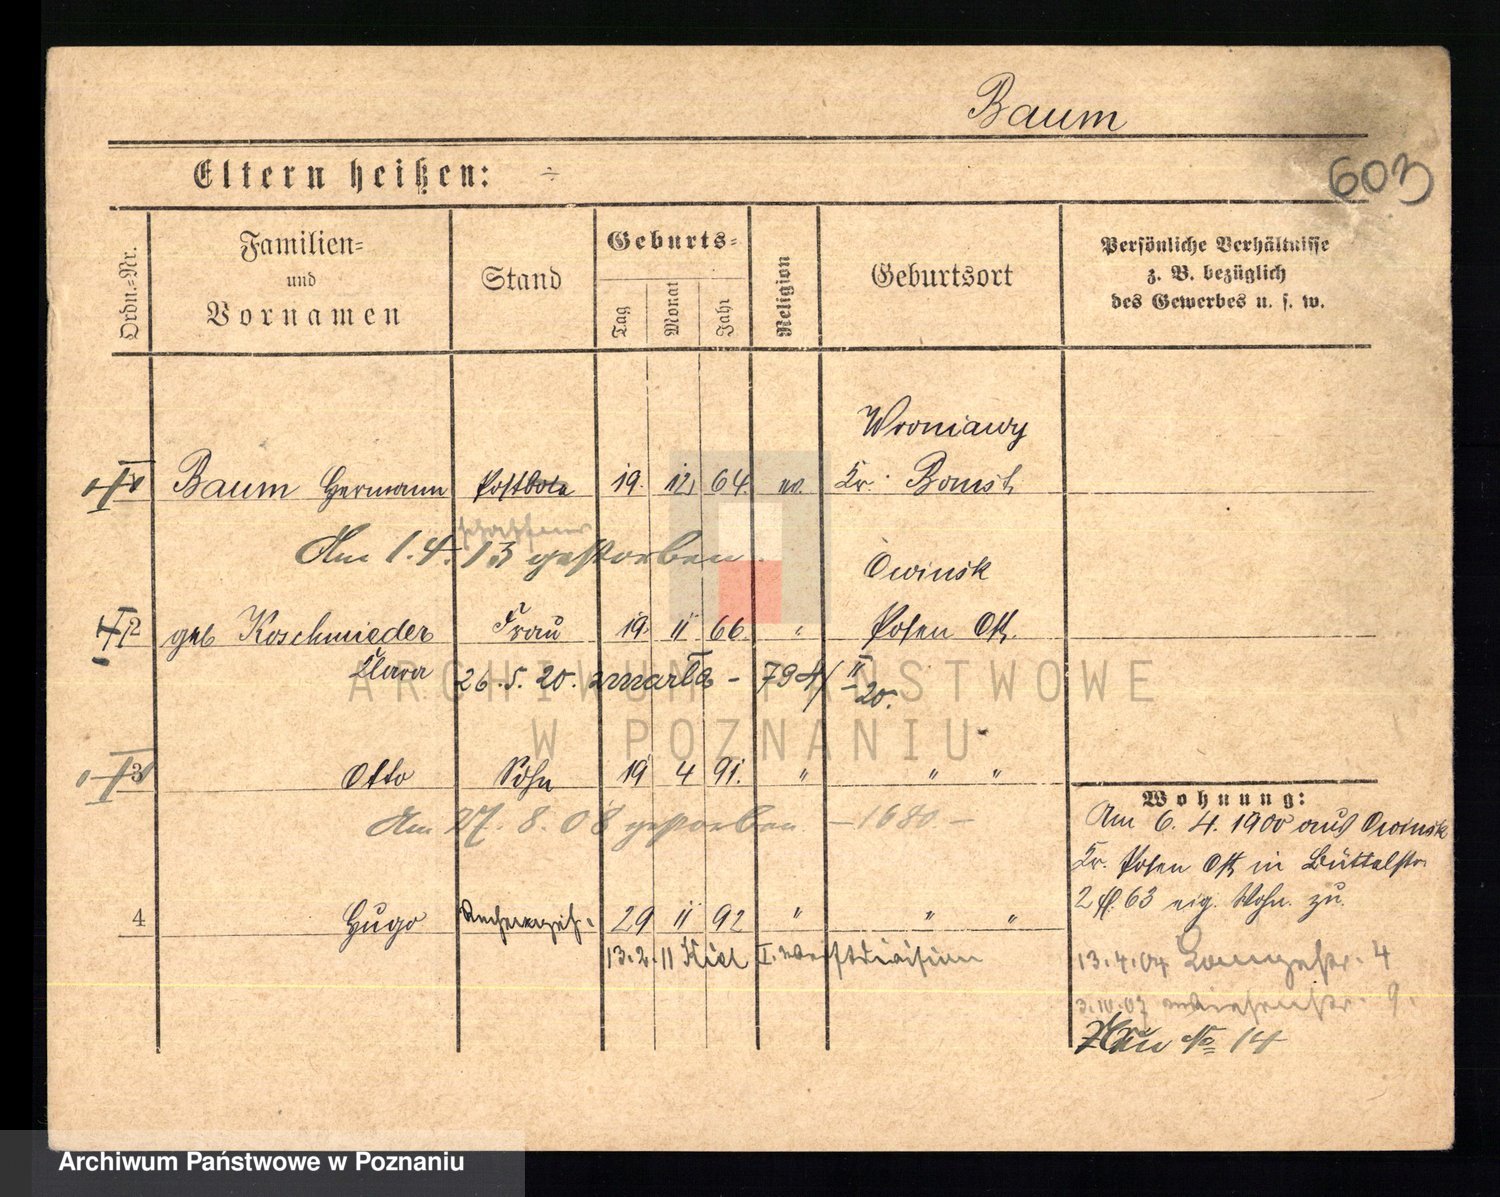 Baum
603
Eltern heißen: ÷
Ordn.-Nr.
Familien-
und
Vornamen
Stand
Geburts-
Tag
Monat
Jahr
Religion
Geburtsort
Persönliche Verhältnisse
z. B. bezüglich
des Gewerbes u. s. w.
Wroniawy
1 Baum Hermann Postbote 19. 12. 64. ev. Kr. Bomst
Am 1.4.13 gestorben
Owinsk
2 geb Koschmieder Frau 19. 11 66 " Posen Ost.
Clara 26.5.20. zmarła - 794/II 20.
3 Otto Sohn 19 4 91. " " "
Am 27.8.08 gestorben. - 1680 -
4 Hugo 29 11 92 " " "
13.2.11 Kiel I. Werftdivision
Wohnung:
Am 6.4.1900 aus Owinsk
Kr. Posen Ost in Büttelstr.
2 63 eig. Wohn. zu.
13.4.04 4
3.10.07 Wiesenstr. 9.
No 14
ARCHIWUM PAŃSTWOWE
W POZNANIU
Archiwum Państwowe w Poznaniu